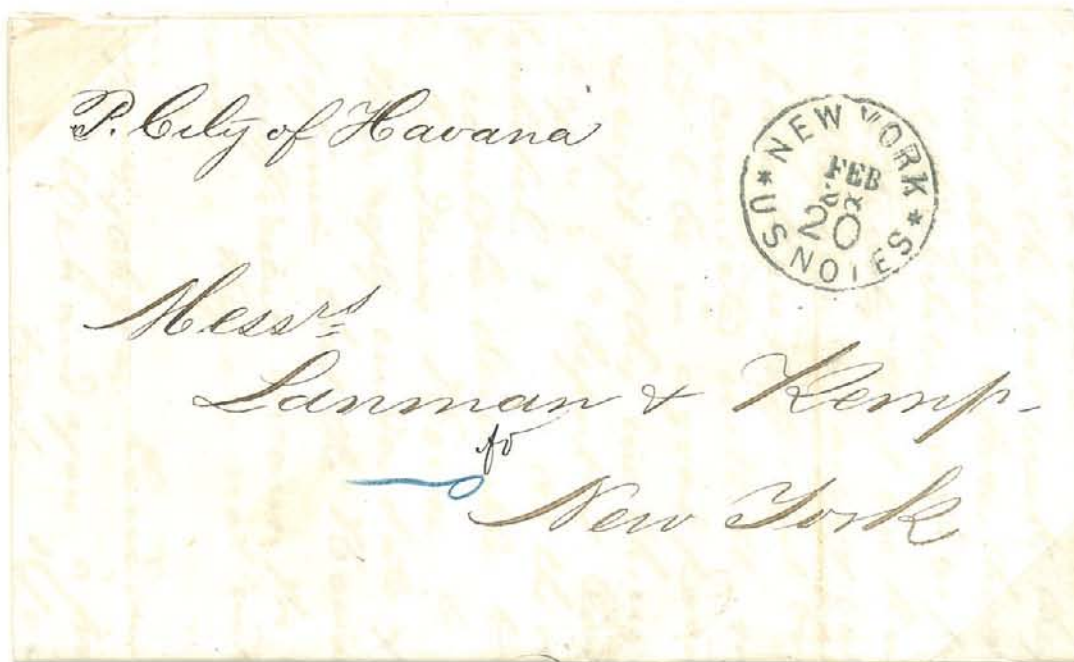 P. City of Havana
* NEW YORK *
FEB
20
US NOTES
Messrs
Lanman & Kemp-
New York